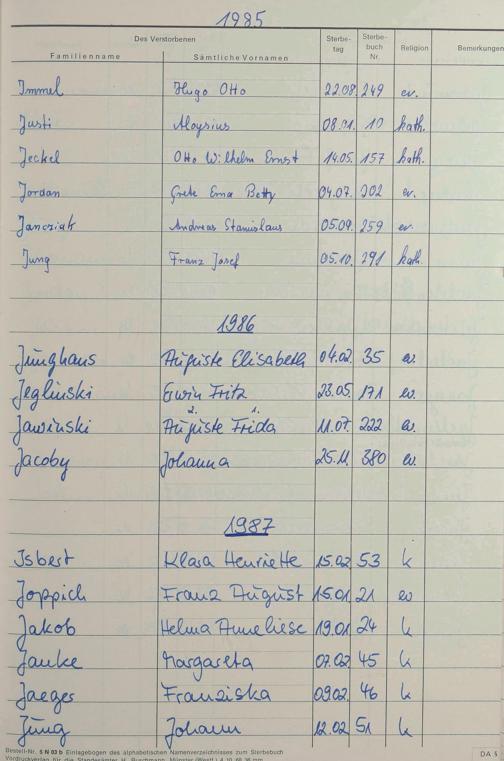 1985
Des Verstorbenen
Familienname Sämtliche Vornamen Sterbe-tag Sterbe-buch Nr. Religion Bemerkungen
Immel Hugo Otto 22.08. 249 ev.
Justi Aloysius 08.01. 10 kath.
Jeckel Otto Wilhelm Ernst 14.05. 157 kath.
Jordan Grete Erna Betty 04.07. 202 ev.
Janoziak Andreas Stanislaus 05.09. 259 ev.
Jung Franz Josef 05.10. 291 kath.
1986
Junghaus Auguste Elisabeth 04.02. 35 ev.
Jeglinski Erwin Fritz 23.05. 171 ev.
2. 1.
Jawinski Auguste Frida 11.07. 222 ev.
Jacoby Johanna 25.11. 380 ev.
1987
Isbert Klara Henriette 15.02 53 k
Joppich Franz August 15.01. 21 ev
Jakob Helma Anneliese 19.01 24 k
Janke Margareta 07.02. 45 k
Jaeger Franziska 09.02. 46 k
Jung Johann 12.02 51 k
Bestell-Nr. S N 03 b Einlagebogen des alphabetischen Namenverzeichnisses zum Sterbebuch
Vordruckverlag für die Standesämter H. Buschmann, Münster (Westf.) DA 5